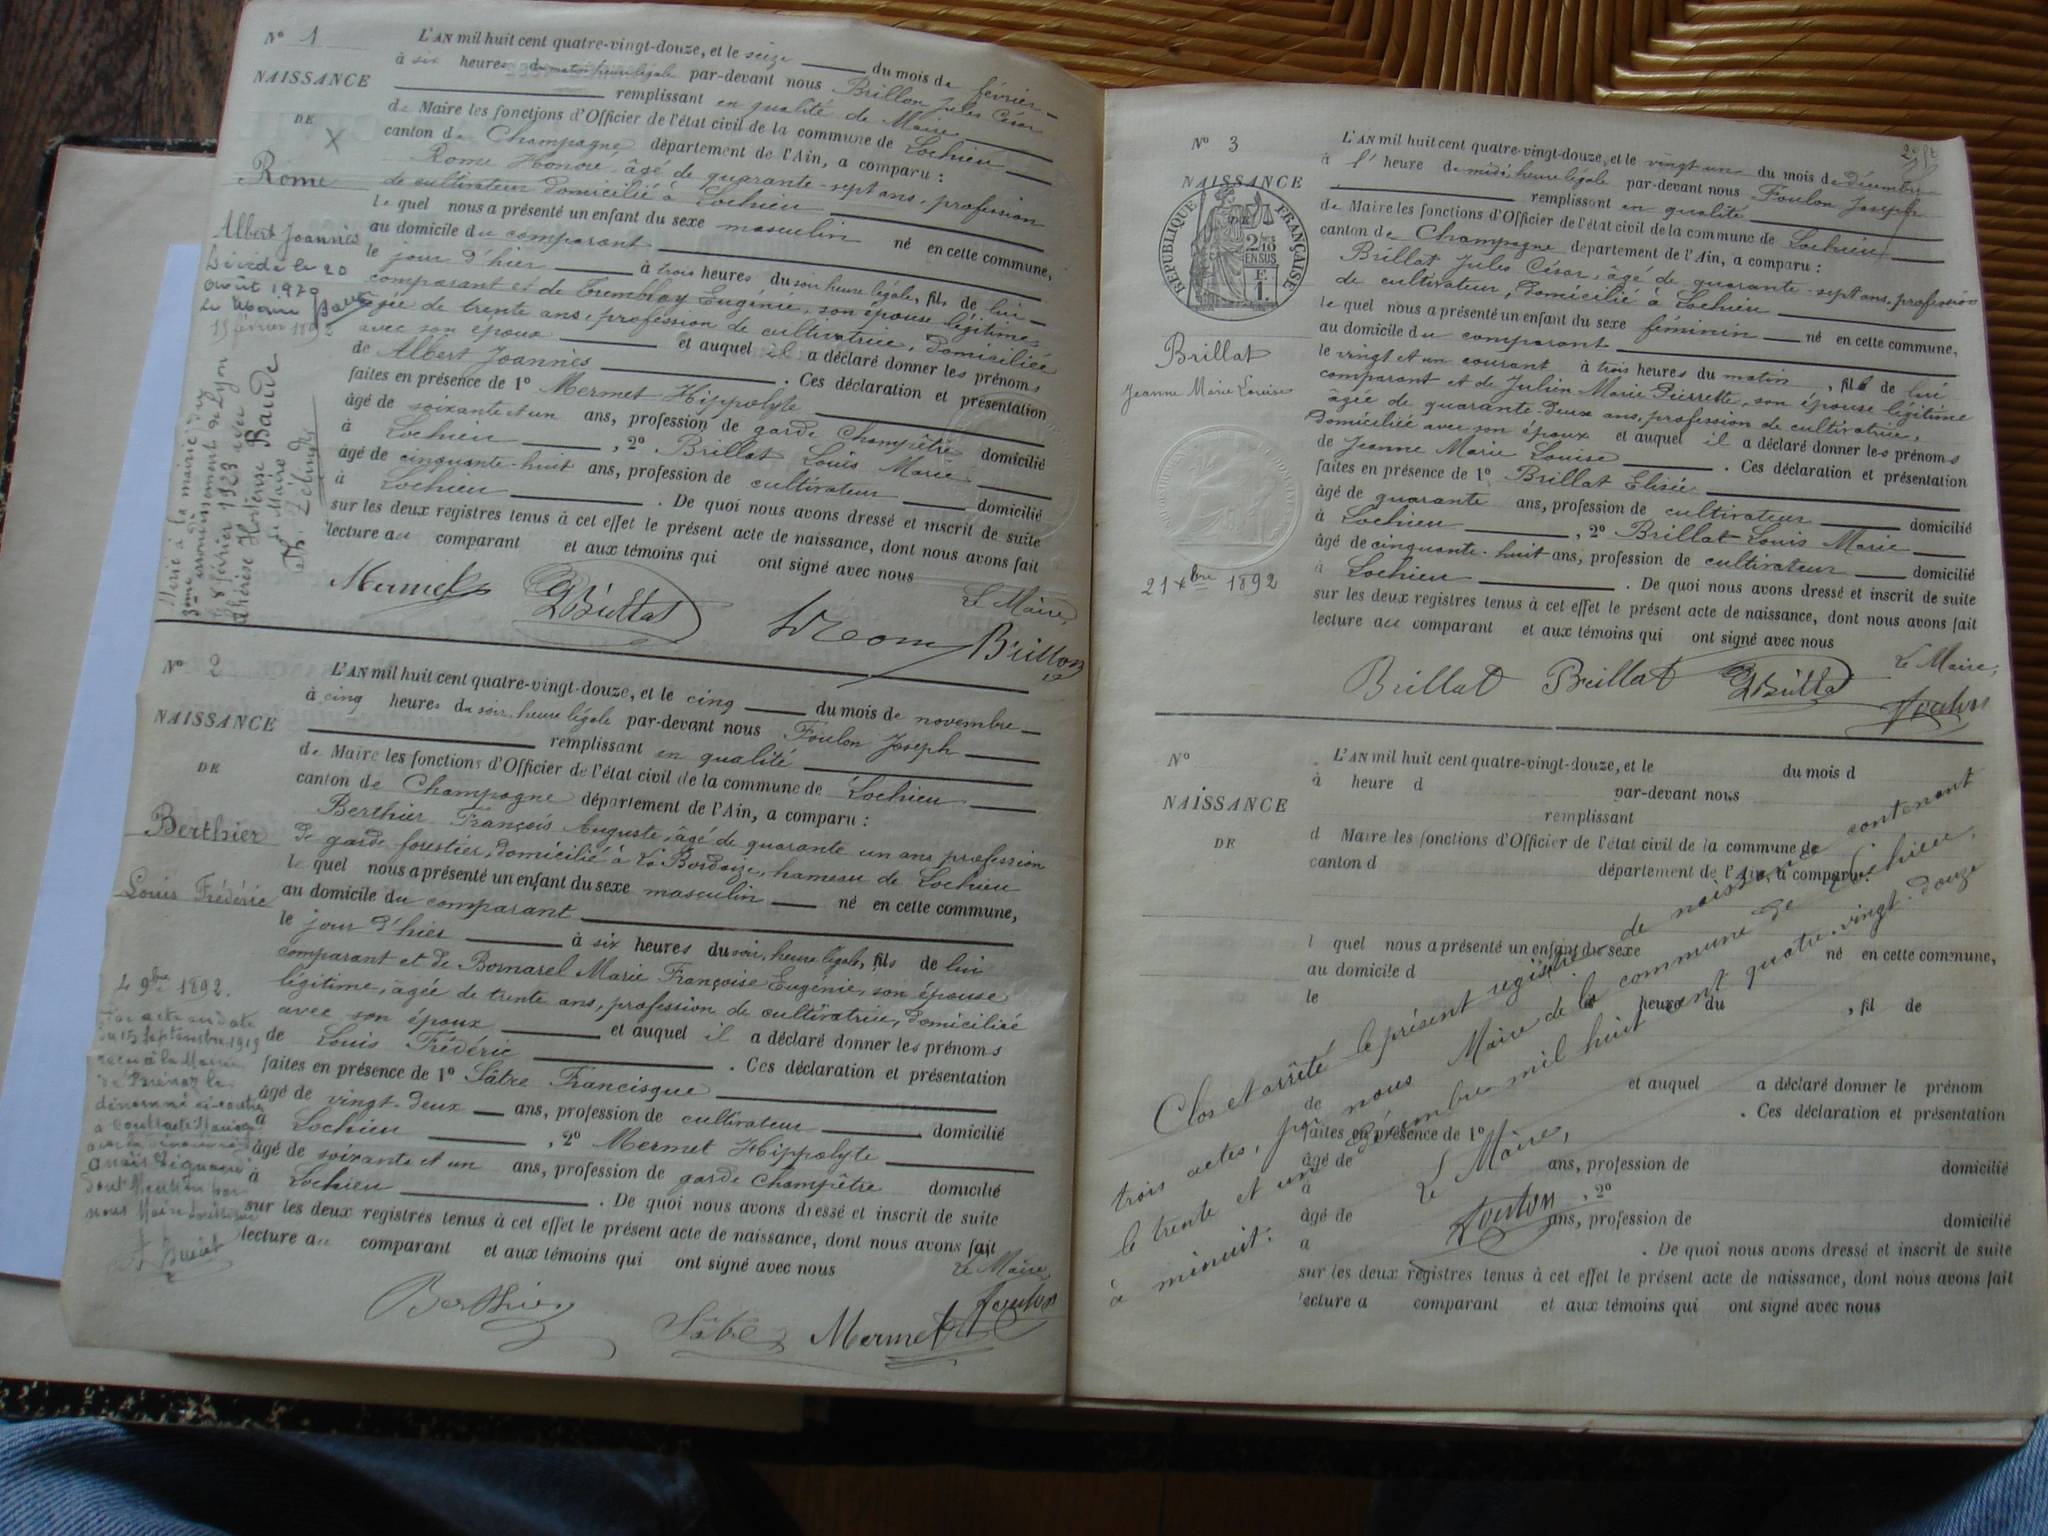 N° 1
NAISSANCE
DE
X
Rome
Albert Joannès
Décédé le 20
Août 1979
Le Maire
15 février 1892
Marié à la mairie du
3ème arrondissement de Lyon
le 8 février 1923 avec
Thérèse Hortense Baude
Le Maire
L'AN mil huit cent quatre-vingt-douze, et le seize du mois de février
à six heures du matin heure légale par-devant nous Brillon Jules César
remplissant en qualité de Maire
de Maire les fonctions d'Officier de l'état civil de la commune de Lochieu
canton de Champagne département de l'Ain, a comparu :
Rome Honoré, âgé de quarante-sept ans, profession
de cultivateur domicilié à Lochieu
le quel nous a présenté un enfant du sexe masculin né en cette commune,
au domicile du comparant
le jour d'hier à trois heures du soir heure légale, fils de lui
comparant et de Tremblay Eugénie, son épouse légitime,
âgée de trente ans, profession de cultivatrice, domiciliée
avec son époux et auquel il a déclaré donner les prénoms
de Albert Joannès . Ces déclaration et présentation
faites en présence de 1° Mermet Hippolyte
âgé de soixante et un ans, profession de garde champêtre domicilié
à Lochieu , 2° Brillat Louis Marie
âgé de cinquante-huit ans, profession de cultivateur domicilié
à Lochieu . De quoi nous avons dressé et inscrit de suite
sur les deux registres tenus à cet effet le présent acte de naissance, dont nous avons fait
lecture au comparant et aux témoins qui ont signé avec nous
Le Maire,
Mermet Brillat Brillon
N° 2
NAISSANCE
DE
Berthier
Louis Frédéric
4 9bre 1892.
Par acte en date
du 15 Septembre 1919
reçu à la Mairie
dont Mention par
nous Maire
L'AN mil huit cent quatre-vingt-douze, et le cinq du mois de novembre
à cinq heures du soir, heure légale par-devant nous Foulon Joseph
remplissant en qualité
de Maire les fonctions d'Officier de l'état civil de la commune de Lochieu
canton de Champagne département de l'Ain, a comparu :
Berthier François Auguste, âgé de quarante un ans profession
de garde forestier, domicilié à La Bordaize, hameau de Lochieu
le quel nous a présenté un enfant du sexe masculin né en cette commune,
au domicile du comparant
le jour d'hier à six heures du soir, heure légale, fils de lui
comparant et de Bornarel Marie Françoise Eugénie, son épouse
légitime, âgée de trente ans, profession de cultivatrice, domiciliée
avec son époux et auquel il a déclaré donner les prénoms
de Louis Frédéric . Ces déclaration et présentation
faites en présence de 1° Sâtre Francisque
âgé de vingt-deux ans, profession de cultivateur domicilié
à Lochieu , 2° Mermet Hippolyte
âgé de soixante et un ans, profession de garde champêtre domicilié
à Lochieu . De quoi nous avons dressé et inscrit de suite
sur les deux registres tenus à cet effet le présent acte de naissance, dont nous avons fait
lecture au comparant et aux témoins qui ont signé avec nous
Le Maire,
Berthier Sâtre Mermet Foulon
N° 3
NAISSANCE
DE
RÉPUBLIQUE FRANÇAISE
2/10
EN SUS
F.
1.
Brillat
Jeanne Marie Louise
21 Xbre 1892
L'AN mil huit cent quatre-vingt-douze, et le vingt un du mois de décembre
à l' heure de midi, heure légale par-devant nous Foulon Joseph
remplissant en qualité
de Maire les fonctions d'Officier de l'état civil de la commune de Lochieu
canton de Champagne département de l'Ain, a comparu :
Brillat Jules César, âgé de quarante-sept ans, profession
de cultivateur, domicilié à Lochieu
le quel nous a présenté un enfant du sexe féminin né en cette commune,
au domicile du comparant
le vingt et un courant à trois heures du matin , fille de lui
comparant et de Julien Marie Pierrette, son épouse légitime
âgée de quarante-deux ans, profession de cultivatrice,
domiciliée avec son époux et auquel il a déclaré donner les prénoms
de Jeanne Marie Louise . Ces déclaration et présentation
faites en présence de 1° Brillat Elisée
âgé de quarante ans, profession de cultivateur domicilié
à Lochieu , 2° Brillat Louis Marie
âgé de cinquante-huit ans, profession de cultivateur domicilié
à Lochieu . De quoi nous avons dressé et inscrit de suite
sur les deux registres tenus à cet effet le présent acte de naissance, dont nous avons fait
lecture au comparant et aux témoins qui ont signé avec nous
Le Maire,
Brillat Brillat Brillat Foulon
N°
NAISSANCE
DE
L'AN mil huit cent quatre-vingt-douze, et le du mois d
à heure d par-devant nous
remplissant
d Maire les fonctions d'Officier de l'état civil de la commune de
canton d département de l'Ain, a comparu :
l quel nous a présenté un enfant du sexe né en cette commune,
au domicile d
le à heure du , fil de
et auquel a déclaré donner le prénom
de . Ces déclaration et présentation
faites en présence de 1°
âgé de ans, profession de domicilié
à , 2°
âgé de ans, profession de domicilié
à . De quoi nous avons dressé et inscrit de suite
sur les deux registres tenus à cet effet le présent acte de naissance, dont nous avons fait
lecture a comparant et aux témoins qui ont signé avec nous
Clos et arrêté le présent registre de naissance contenant
trois actes, par nous Maire de la commune de Lochieu,
le trente et un décembre mil huit cent quatre-vingt-douze
à minuit.
Le Maire,
Foulon